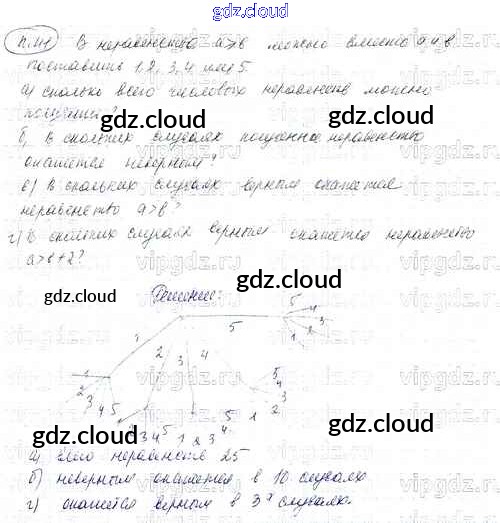 gdz.cloud
П.44 В неравенство а>в можно вместо а и в
поставить 1, 2, 3, 4 или 5.
а) сколько всего числовых неравенств можно
получить?
gdz.cloud
gdz.cloud
б) в скольких случаях полученное неравенство
окажется неверным?
в) в скольких случаях верным окажется
неравенство а>в?
г) в скольких случаях верным окажется неравенство
а>в+2?
gdz.cloud
gdz.cloud
Решение:
5
1
5
4
3
2
1
2
3
4
1
2
3
4
5
5
4
3
gdz.cloud
gdz.cloud
3 4 5 1 2 3 4 5 1 2
а) всего неравенств 25
б) неверным окажется в 10 случаях
г) окажется верным в 3х случаях.